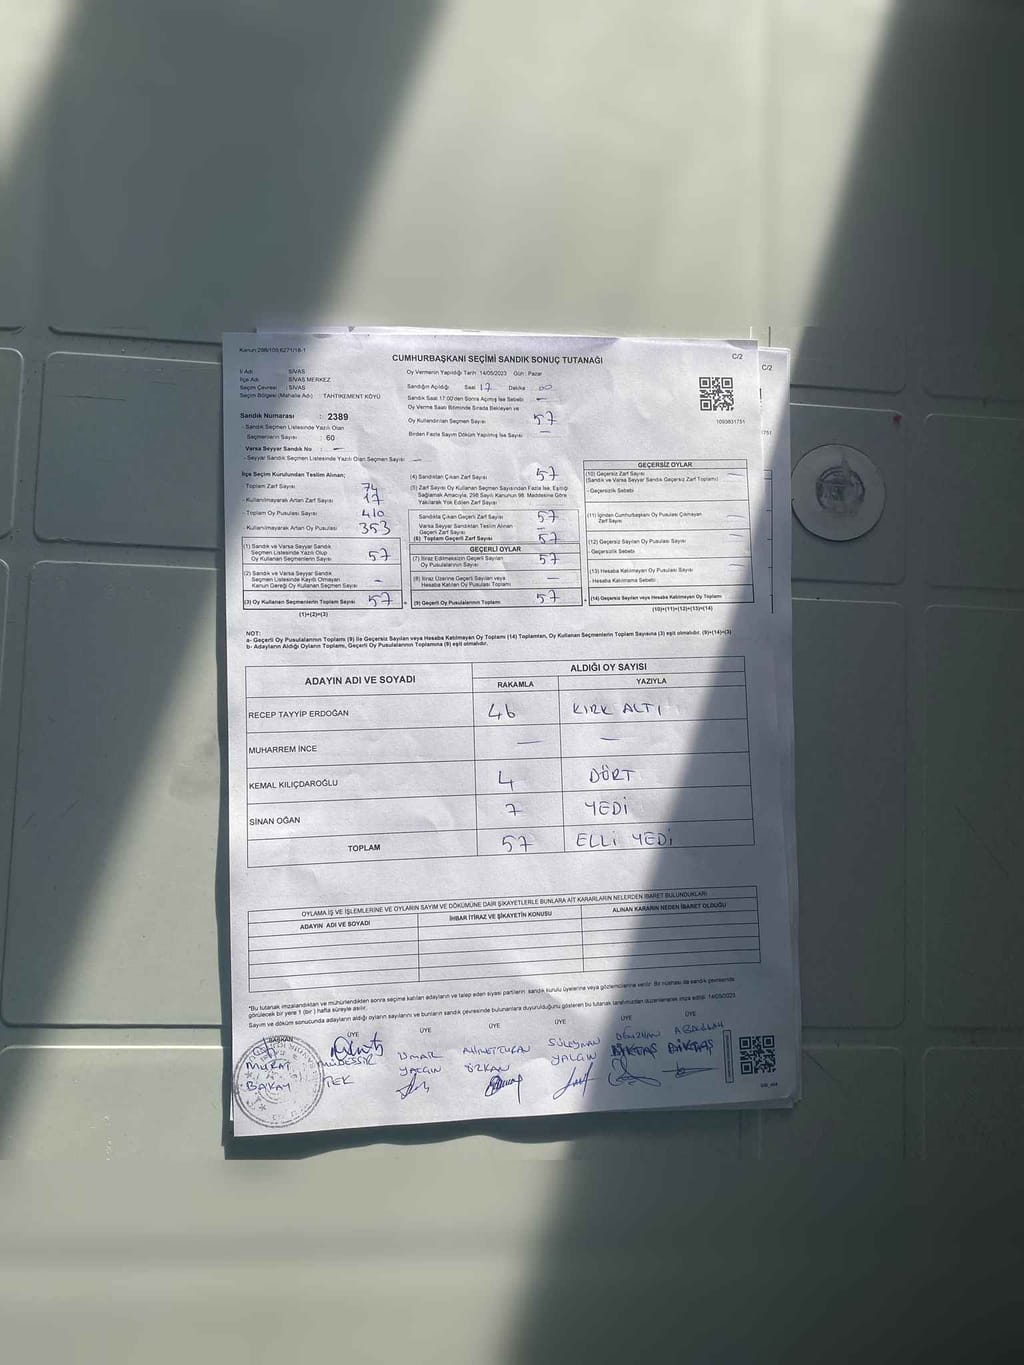 Kanun:298/105;6271/18-1
CUMHURBAŞKANI SEÇİMİ SANDIK SONUÇ TUTANAĞI
C/2
C/2
İl Adı : SİVAS
İlçe Adı : SİVAS MERKEZ
Seçim Çevresi : SİVAS
Seçim Bölgesi (Mahalle Adı) : TAHTIKEMENT KÖYÜ
Oy Vermenin Yapıldığı Tarih :14/05/2023 Gün : Pazar
Sandığın Açıldığı Saat 17 Dakika 00
Sandık Saat 17:00'den Sonra Açılmış İse Sebebi —
Oy Verme Saati Bitiminde Sırada Bekleyen ve
Oy Kullandırılan Seçmen Sayısı 57
Birden Fazla Sayım Döküm Yapılmış İse Sayısı —
1093831751
751
Sandık Numarası : 2389
- Sandık Seçmen Listesinde Yazılı Olan
Seçmenlerin Sayısı : 60
Varsa Seyyar Sandık No : —
- Seyyar Sandık Seçmen Listesinde Yazılı Olan Seçmen Sayısı —
İlçe Seçim Kurulundan Teslim Alınan;
- Toplam Zarf Sayısı 74
- Kullanılmayarak Artan Zarf Sayısı 17
- Toplam Oy Pusulası Sayısı 410
- Kullanılmayarak Artan Oy Pusulası 353
(1) Sandık ve Varsa Seyyar Sandık
Seçmen Listesinde Yazılı Olup
Oy Kullanan Seçmenlerin Sayısı 57
(2) Sandık ve Varsa Seyyar Sandık
Seçmen Listesinde Kayıtlı Olmayan
Kanun Gereği Oy Kullanan Seçmen Sayısı —
(3) Oy Kullanan Seçmenlerin Toplam Sayısı 57
(1)+(2)=(3)
(4) Sandıktan Çıkan Zarf Sayısı 57
(5) Zarf Sayısı Oy Kullanan Seçmen Sayısından Fazla İse, Eşitliği
Sağlamak Amacıyla, 298 Sayılı Kanunun 98. Maddesine Göre
Yakılarak Yok Edilen Zarf Sayısı
Sandıkta Çıkan Geçerli Zarf Sayısı 57
Varsa Seyyar Sandıktan Teslim Alınan
Geçerli Zarf Sayısı —
(6) Toplam Geçerli Zarf Sayısı 57
GEÇERLİ OYLAR
(7) İtiraz Edilmeksizin Geçerli Sayılan
Oy Pusulalarının Sayısı 57
(8) İtiraz Üzerine Geçerli Sayılan veya
Hesaba Katılan Oy Pusulası Toplamı —
(9) Geçerli Oy Pusulalarının Toplamı 57
GEÇERSİZ OYLAR
(10) Geçersiz Zarf Sayısı
(Sandık ve Varsa Seyyar Sandık Geçersiz Zarf Toplamı) —
- Geçersizlik Sebebi
(11) İçinden Cumhurbaşkanı Oy Pusulası Çıkmayan
Zarf Sayısı —
(12) Geçersiz Sayılan Oy Pusulası Sayısı —
- Geçersizlik Sebebi
(13) Hesaba Katılmayan Oy Pusulası Sayısı —
- Hesaba Katılmama Sebebi
(14) Geçersiz Sayılan veya Hesaba Katılmayan Oy Toplamı —
(10)+(11)+(12)+(13)=(14)
NOT:
a- Geçerli Oy Pusulalarının Toplamı (9) ile Geçersiz Sayılan veya Hesaba Katılmayan Oy Toplamı (14) Toplamları, Oy Kullanan Seçmenlerin Toplam Sayısına (3) eşit olmalıdır. (9)+(14)=(3)
b- Adayların Aldığı Oyların Toplamı, Geçerli Oy Pusulalarının Toplamına (9) eşit olmalıdır.
ADAYIN ADI VE SOYADI
ALDIĞI OY SAYISI
RAKAMLA YAZIYLA
RECEP TAYYİP ERDOĞAN 46 KIRK ALTI
MUHARREM İNCE — —
KEMAL KILIÇDAROĞLU 4 DÖRT
SİNAN OĞAN 7 YEDİ
TOPLAM 57 ELLİ YEDİ
OYLAMA İŞ VE İŞLEMLERİNE VE OYLARIN SAYIM VE DÖKÜMÜNE DAİR ŞİKAYETLERLE BUNLARA AİT KARARLARIN NELERDEN İBARET BULUNDUKLARI
ADAYIN ADI VE SOYADI
İHBAR İTİRAZ VE ŞİKAYETİN KONUSU
ALINAN KARARIN NEDEN İBARET OLDUĞU
*Bu tutanak imzalandıktan ve mühürlendikten sonra seçime katılan adayların ve talep eden siyasi partilerin sandık kurulu üyelerine veya gözlemcilerine verilir. Bir nüshası da sandık çevresinde
görülecek bir yere 1 (bir) hafta süreyle asılır.
Sayım ve döküm sonucunda adayların aldığı oyların sayılarını ve bunların sandık çevresinde bulunanlara duyurulduğunu gösteren bu tutanak tarafımızdan düzenlenerek imza edildi. 14/05/2023
BAŞKAN ÜYE ÜYE ÜYE ÜYE ÜYE ÜYE
MURAT
BAKAY
TEK
UMAR
YALGIN
AHMET TURAN
ÖZKAN
SÜLEYMAN
YALGIN
OĞUZHAN
BİKTAŞ
ABDULLAH
BİKTAŞ